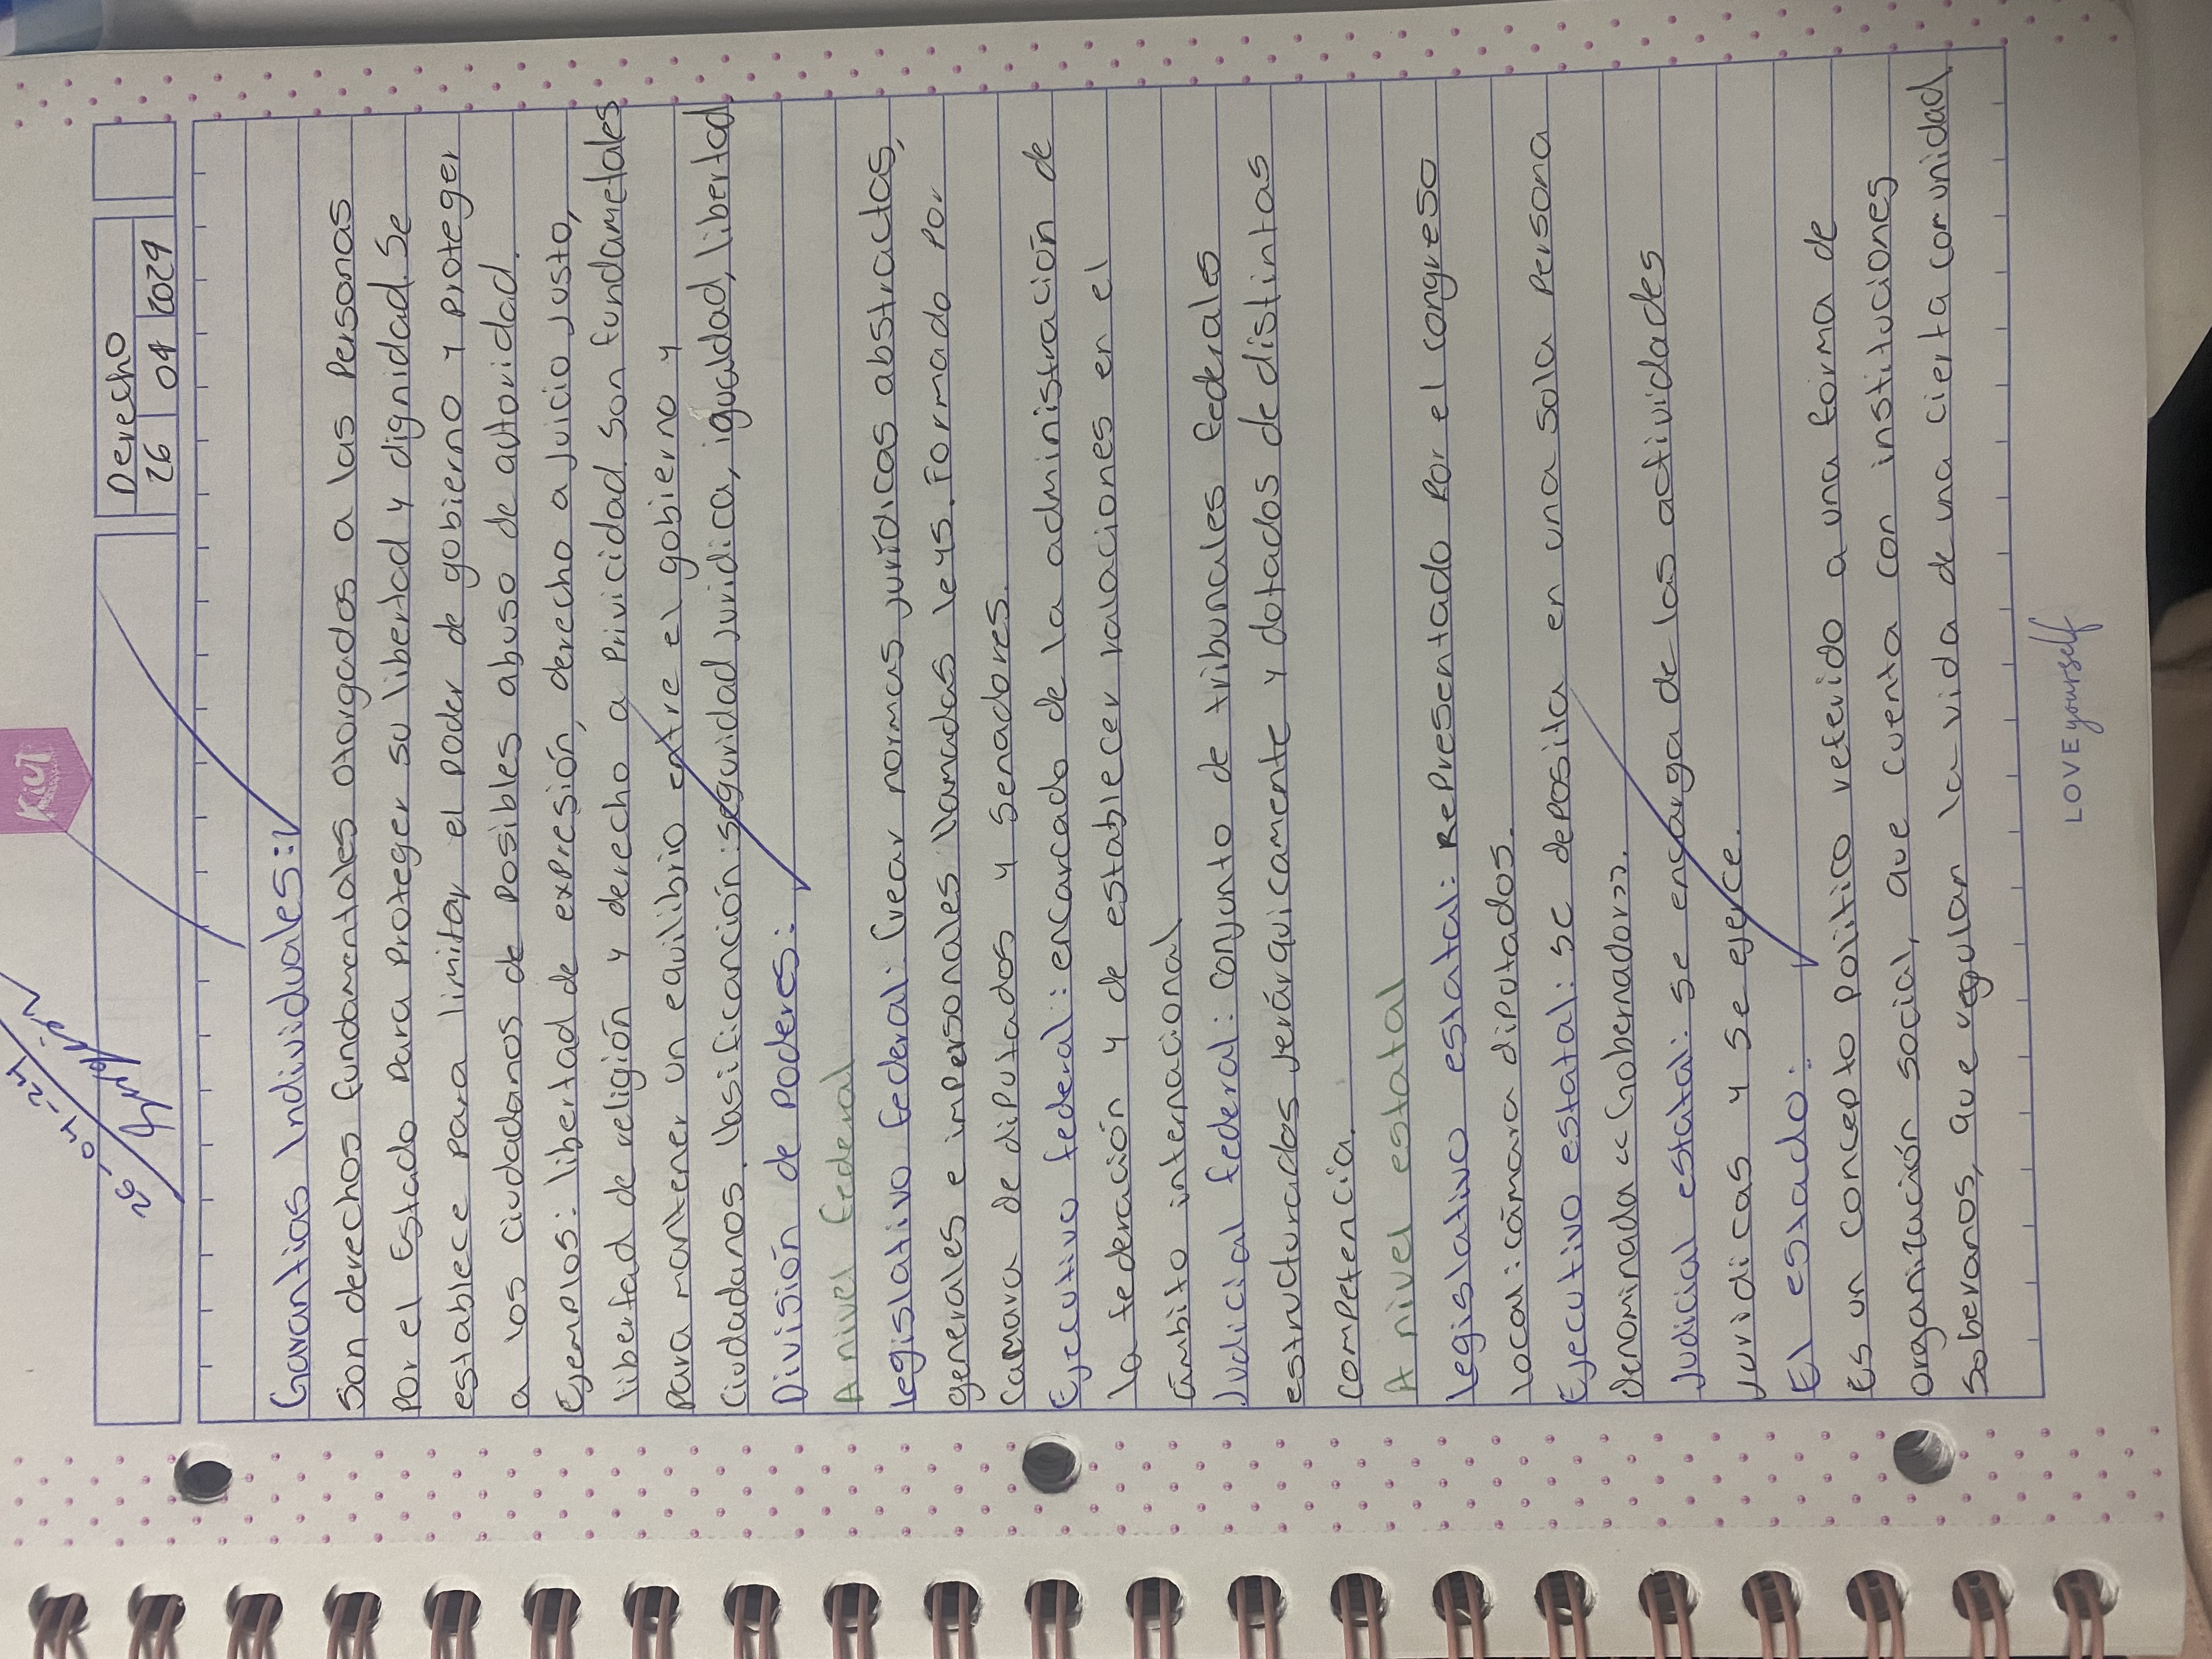 Kiut
26-04-24
Derecho
26 04 2024
Garantias Individuales:
Son derechos fundamentales otorgados a las Personas
Por el Estado Para Proteger su libertad y dignidad. Se
establece Para limitar el poder de gobierno y proteger
a los ciudadanos de Posibles abuso de autoridad.
Ejemplos: libertad de expresión, derecho a Juicio Justo,
libertad de religión y derecho a Privicidad. Son fundametales
Para mantener un equilibrio entre el gobierno y
Ciudadanos. lasificanción: seguridad Juridica, igualdad, libertad
División de Poderes:
A nivel federal
legislativo federal: Crear normas Jurídicas abstractas,
generales e impersonales llamadas leys. Formado Por
Camara de diputados y Senadores.
Ejecutivo federal: encarcado de la administración de
la federación y de establecer ralaciones en el
ámbito internacional
Judicial federal: conjunto de tribunales federales
estructurados Jerárquicamente y dotados de distintas
competencia.
A nivel estatal
legislativo estatal: Representado Por el congreso
local: cámara diputados.
Ejecutivo estatal: se deposita en una sola Persona
denominada "Gobernador".
Judicial estatal: se encarga de las actividades
Juridicas y se ejerce.
El estado:
Es un concepto político referido a una forma de
organización social, que cuenta con instituciones
Soberanos, que regulan la vida de una cierta comunidad
LOVE yourself